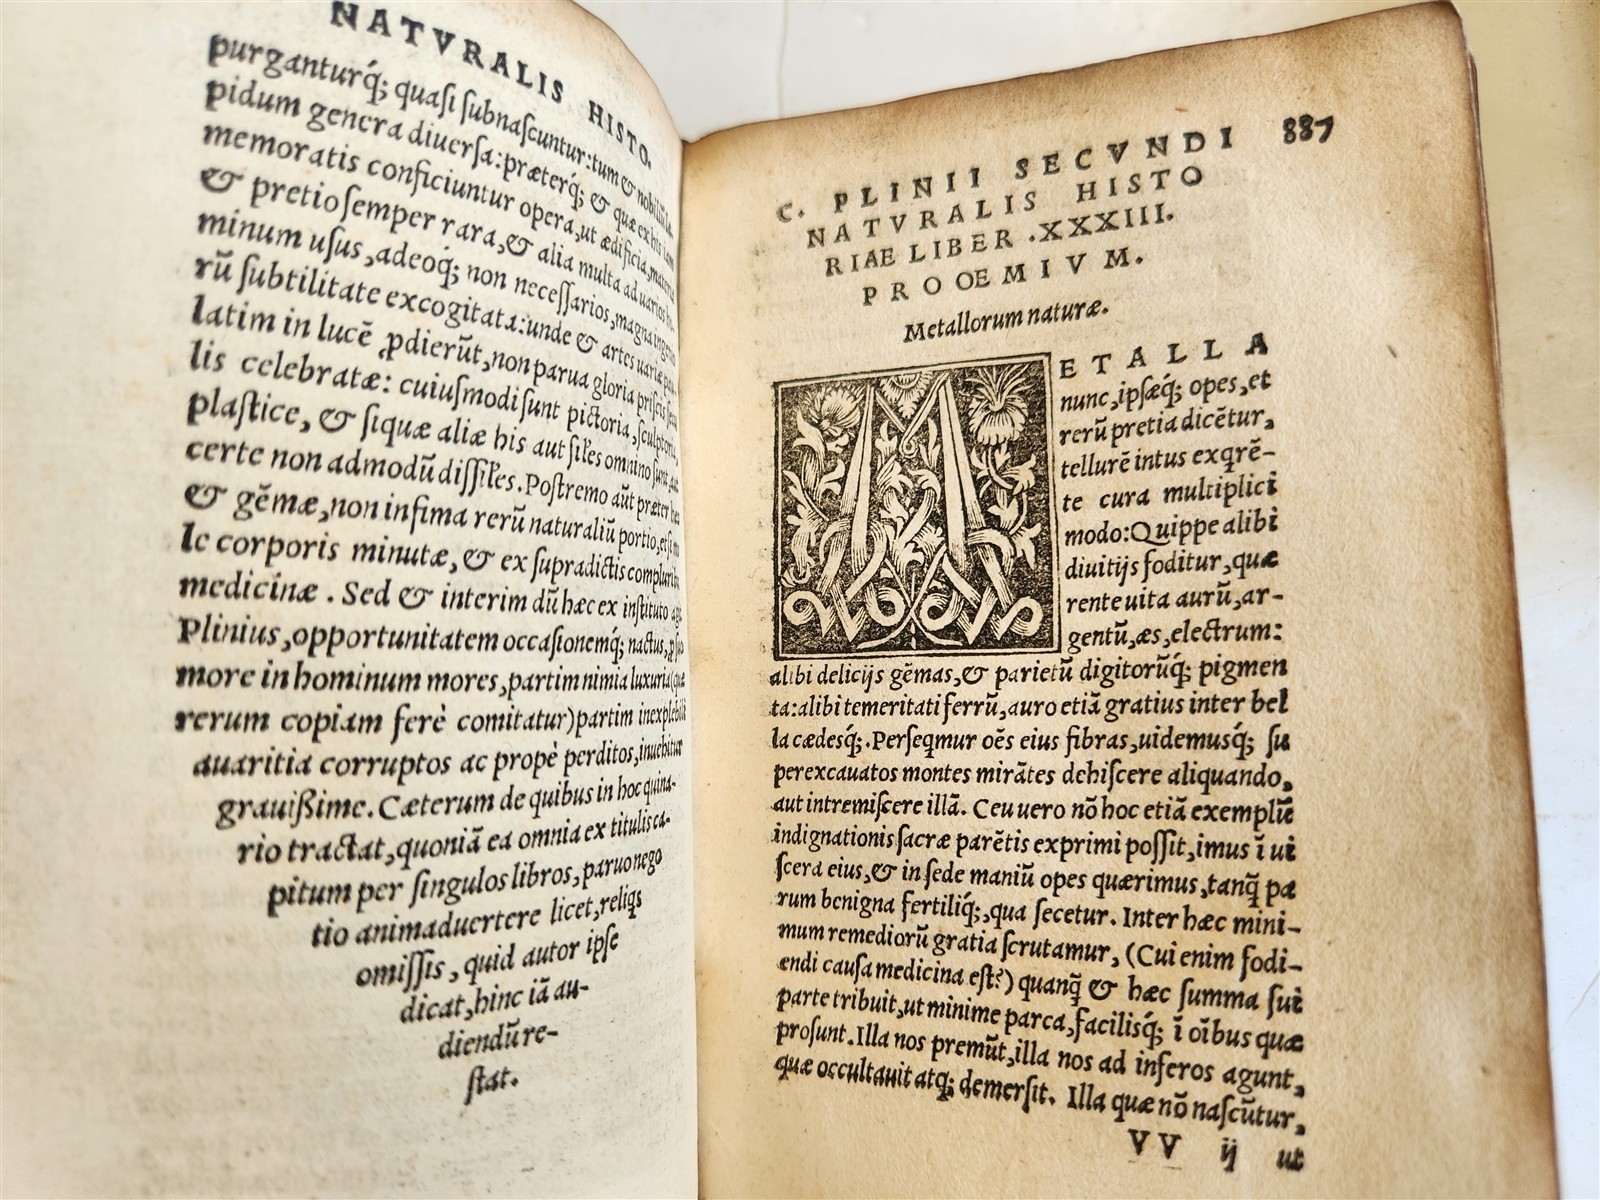 NATVRALIS HISTO.
purganturq́; quaſi ſubnaſcuntur: tum & nobiliſſi
pidum genera diuerſa: præterq́; & quæ ex his iam
memoratis conficiuntur opera, ut ædificia,
& pretio ſemper rara, & alia multa ad uarios
minum uſus, adeoq́; non neceſſarios, magna
rū ſubtilitate excogitata: unde & artes uariæ
latim in lucē ꝓdierūt, non parua gloria priſcis
lis celebratæ: cuiuſmodi ſunt pictoria,
plaſtice, & ſiquæ aliæ his aut ſil'es omnino ſunt,
certe non admodū diſſil'es. Poſtremo aūt præter
& gēmæ, non infima rerū naturaliū portio,
le corporis minutæ, & ex ſupradictis
medicinæ. Sed & interim dū hæc ex inſtituto
Plinius, opportunitatem occaſionemq́; nactus,
more in hominum mores, partim nimia luxuria (quæ
rerum copiam ferè comitatur) partim inexplebili
auaritia corruptos ac propè perditos, inuehitur
grauißime. Cæterum de quibus in hoc quina-
rio tractat, quoniā ea omnia ex titulis ca-
pitum per ſingulos libros, paruo nego
tio animaduertere licet, reliqs
omiſſis, quid autor ipſe
dicat, hinc iā au-
diendū re-
ſtat.
887
C. PLINII SECVNDI
NATVRALIS HISTO
RIAE LIBER .XXXIII.
PROOEMIVM.
Metallorum naturæ.
METALLA
nunc, ipſæq́; opes, et
rerū pretia dicētur,
tellurē intus exqrē-
te cura multiplici
modo: Quippe alibi
diuitijs foditur, quæ
rente uita aurū, ar-
gentū, æs, electrum:
alibi delicijs gēmas, & parietū digitorūq́; pigmen
ta: alibi temeritati ferrū, auro etiā gratius inter bel
la cædesq́;. Perſeqmur oēs eius fibras, uidemusq́; ſu
perexcauatos montes mirātes dehiſcere aliquando,
aut intremiſcere illā. Ceu uero nō hoc etiā exemplū
indignationis ſacræ parētis exprimi poſſit, imus ī ui
ſcera eius, & in ſede maniū opes quærimus, tanq̄ pa
rum benigna fertiliq́;, qua ſecetur. Inter hæc mini-
mum remediorū gratia ſcrutamur, (Cui enim fodi-
endi cauſa medicina eſt?) quanq̄ & hæc ſumma ſui
parte tribuit, ut minime parca, facilisq́; ī oībus quæ
proſunt. Illa nos premūt, illa nos ad inferos agunt,
quæ occultauit atq; demerſit. Illa quæ nō naſcūtur,
VV ij ut